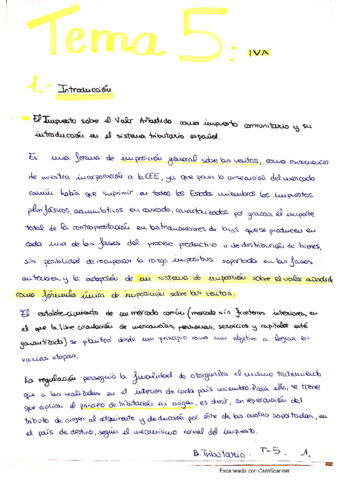 Tema 5: IVA
1.- Introducción
El Impuesto sobre el Valor Añadido como impuesto comunitario y su
introducción en el sistema tributario español.
Es una forma de imposición general sobre las ventas, como consecuencia
de nuestra incorporación a la CEE, ya que para la consecución del mercado
común había que suprimir en todos los Estados miembros los impuestos
plurifásicos, acumulativos en cascada, caracterizados por gravar el importe
total de la contraprestación en las transmisiones de bys que se producen en
cada una de las fases del proceso productivo o de distribución de bienes,
sin posibilidad de recuperar la carga impositiva soportada en las fases
anteriores y la adopción de un sistema de imposición sobre el valor añadido
como fórmula única de imposición sobre las ventas.
El establecimiento de un mercado común (mercado sin fronteras interiores, en
el que la libre circulación de mercancías, personas, servicios y capitales esté
garantizada) se planteó desde un principio como un objetivo a lograr en
varias etapas.
La regulación perseguía la finalidad de otorgarles el mismo tratamiento
que a las realizadas en el interior de cada país miembro. Para ello, se tiene
que aplicar el principio de tributación en origen, es decir, con repercusión del
tributo de origen al adquirente y deducción por éste de las cuotas soportadas, en
el país de destino, según el mecanismo normal del impuesto.
D. Tributario T-5 1.
Escaneado con CamScanner